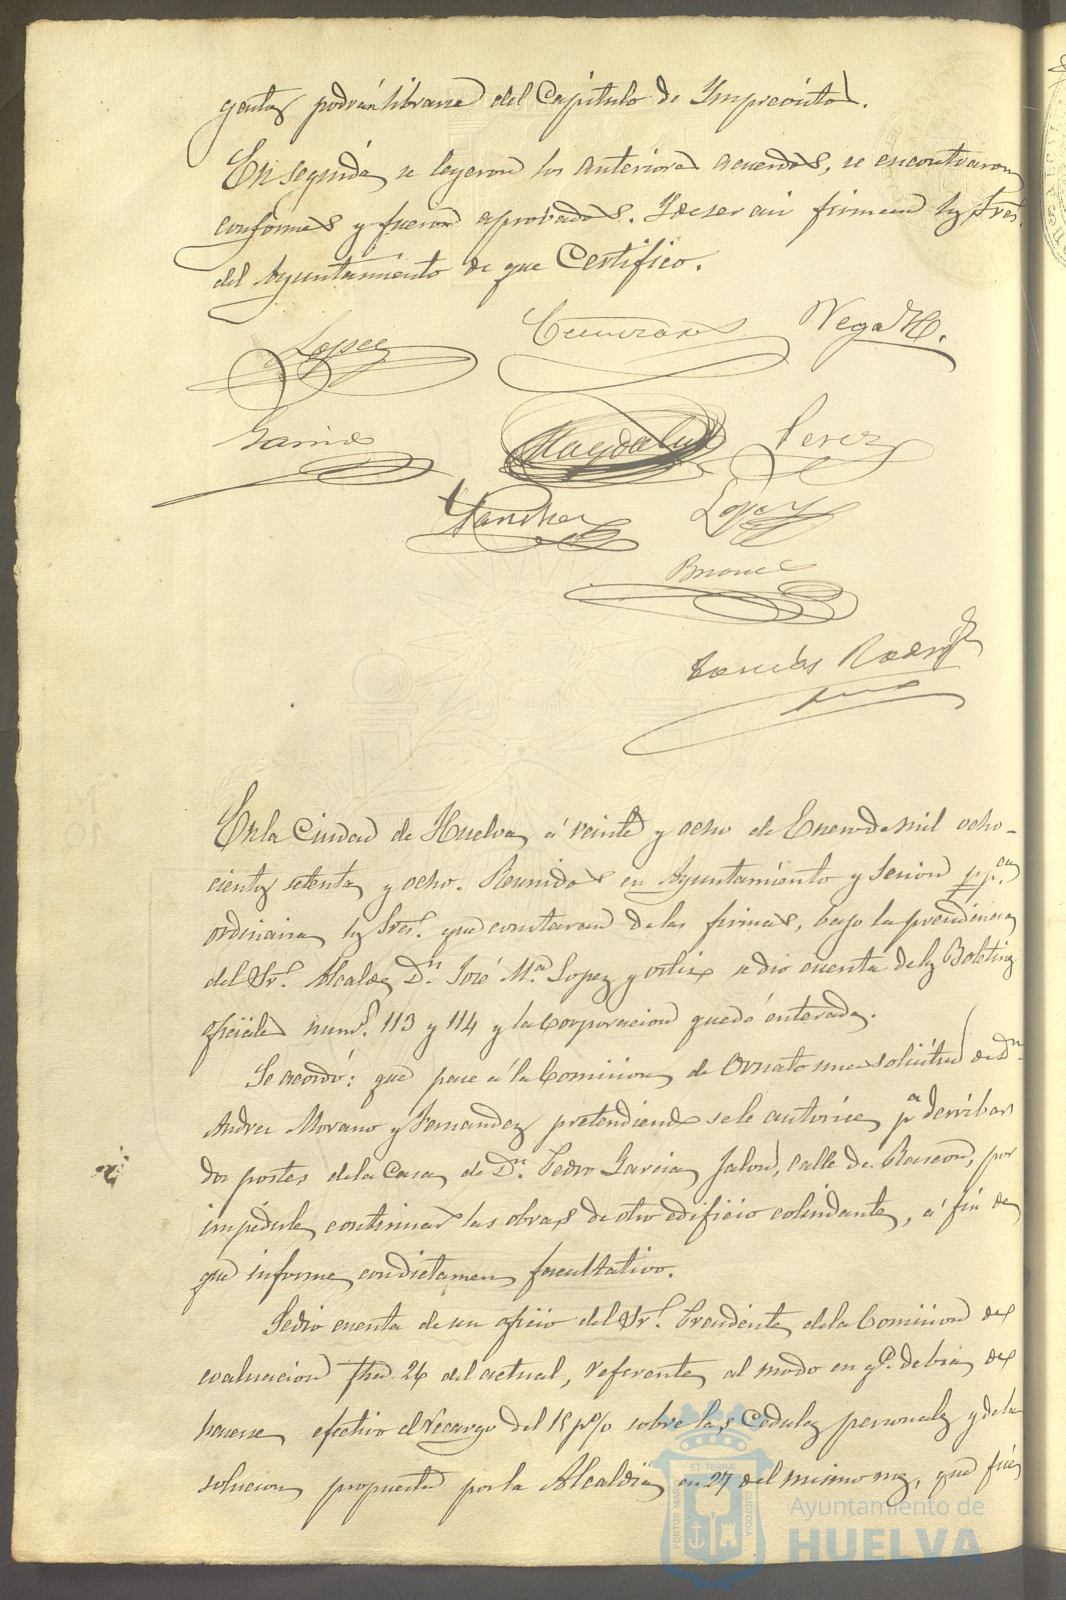 gentes podrán librarse del Capítulo de Imprevistos.
En seguida se leyeron los anteriores acuerdos, se encontraron
conformes y fueron aprobados. Y de ser asi firman los Sres.
del Ayuntamiento de que Certifico.
Lopez
Vega
Garrido
Magdalena
Perez
Sanchez
Lopez
En la Ciudad de Huelva á veinte y ocho de Enero de mil ocho-
cientos setenta y ocho. Reunidos en Ayuntamiento y Sesion pp.ca
ordinaria los Sres. que constaran de las firmas, bajo la presidencia
del Sr. Alcalde Dn. José Ma. Lopez y Ortiz se dio cuenta de los Boletines
oficiales nums. 113 y 114 y la Corporacion quedó enterada.
Se acordó: que pase á la Comision de Ornato una solicitud de Dn.
Andres Morano y Fernandez pretendiendo se le autorice pa. derribar
dos postes de la Casa de Dn. Pedro Garcia Jalon, calle de Rascon, por
impedirle continuar las obras de otro edificio colindante, á fin de
que informe con dictamen facultativo.
Se dio cuenta de un oficio del Sr. Presidente de la Comision de
evaluacion fha. 26 del actual, referente al modo en q.e debia de
hacerse efectivo el recargo del 15 p% sobre las Cedulas personales y de la
solucion propuesta por la Alcaldia en 27 del mismo mes, que fué
PORTUS MARIS ET TERRAE CUSTODIA
Ayuntamiento de
HUELVA